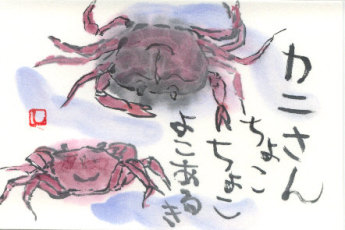 カニさん
ちょこ
ちょこ
よこあるき